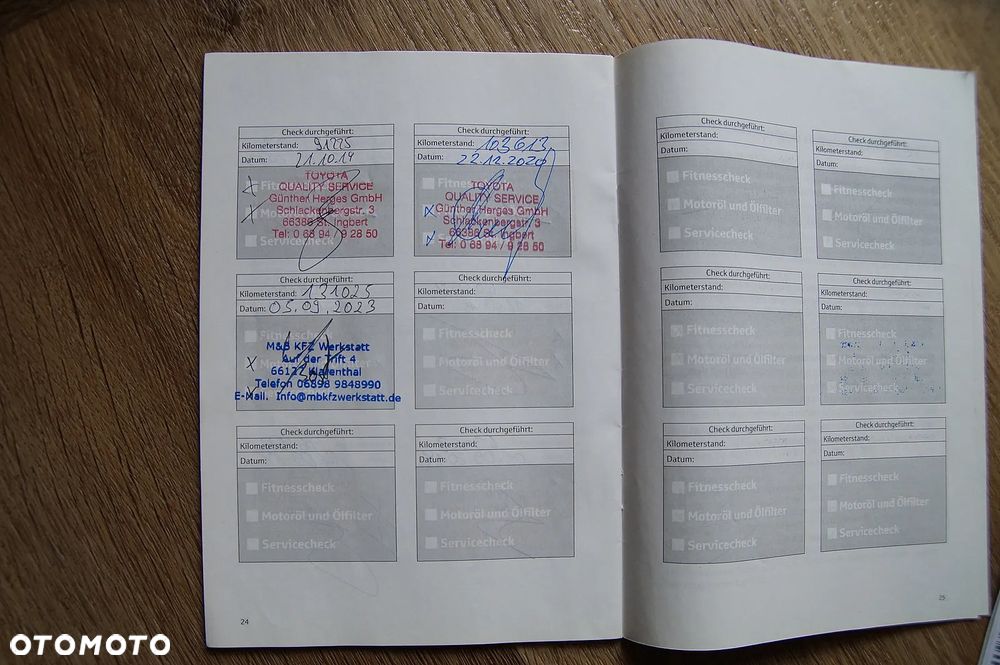 Check durchgeführt:
Kilometerstand: 91225
Datum: 21.10.19
TOYOTA
QUALITY SERVICE
Günther Herges GmbH
Schlackenbergstr. 3
66386 St. Ingbert
Tel: 0 68 94 / 9 28 50
Servicecheck
Check durchgeführt:
Kilometerstand: 103613
Datum: 22.12.2020
TOYOTA
QUALITY SERVICE
Günther Herges GmbH
Schlackenbergstr. 3
66386 St. Ingbert
Tel: 0 68 94 / 9 28 50
Check durchgeführt:
Kilometerstand: 131025
Datum: 05.09.2023
M&B KFZ Werkstatt
Auf der Trift 4
Klarenthal
Telefon 06898 9848990
E-Mail. Info@mbkfzwerkstatt.de
Check durchgeführt:
Kilometerstand:
Datum:
Fitnesscheck
Motoröl und Ölfilter
Servicecheck
Check durchgeführt:
Kilometerstand:
Datum:
Fitnesscheck
Motoröl und Ölfilter
Servicecheck
Check durchgeführt:
Kilometerstand:
Datum:
Fitnesscheck
Motoröl und Ölfilter
Servicecheck
24
Check durchgeführt:
Kilometerstand:
Datum:
Fitnesscheck
Motoröl und Ölfilter
Servicecheck
Check durchgeführt:
Kilometerstand:
Datum:
Fitnesscheck
Motoröl und Ölfilter
Servicecheck
Check durchgeführt:
Kilometerstand:
Datum:
Fitnesscheck
Motoröl und Ölfilter
Servicecheck
Check durchgeführt:
Kilometerstand:
Datum:
Fitnesscheck
Motoröl und Ölfilter
Servicecheck
Check durchgeführt:
Kilometerstand:
Datum:
Fitnesscheck
Motoröl und Ölfilter
Servicecheck
Check durchgeführt:
Kilometerstand:
Datum:
Fitnesscheck
Motoröl und Ölfilter
Servicecheck
25
OTOMOTO